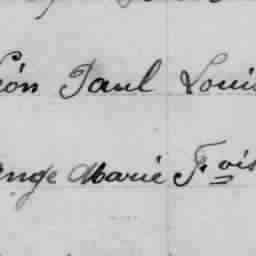 éon Paul Louis
Ange Marie Fois